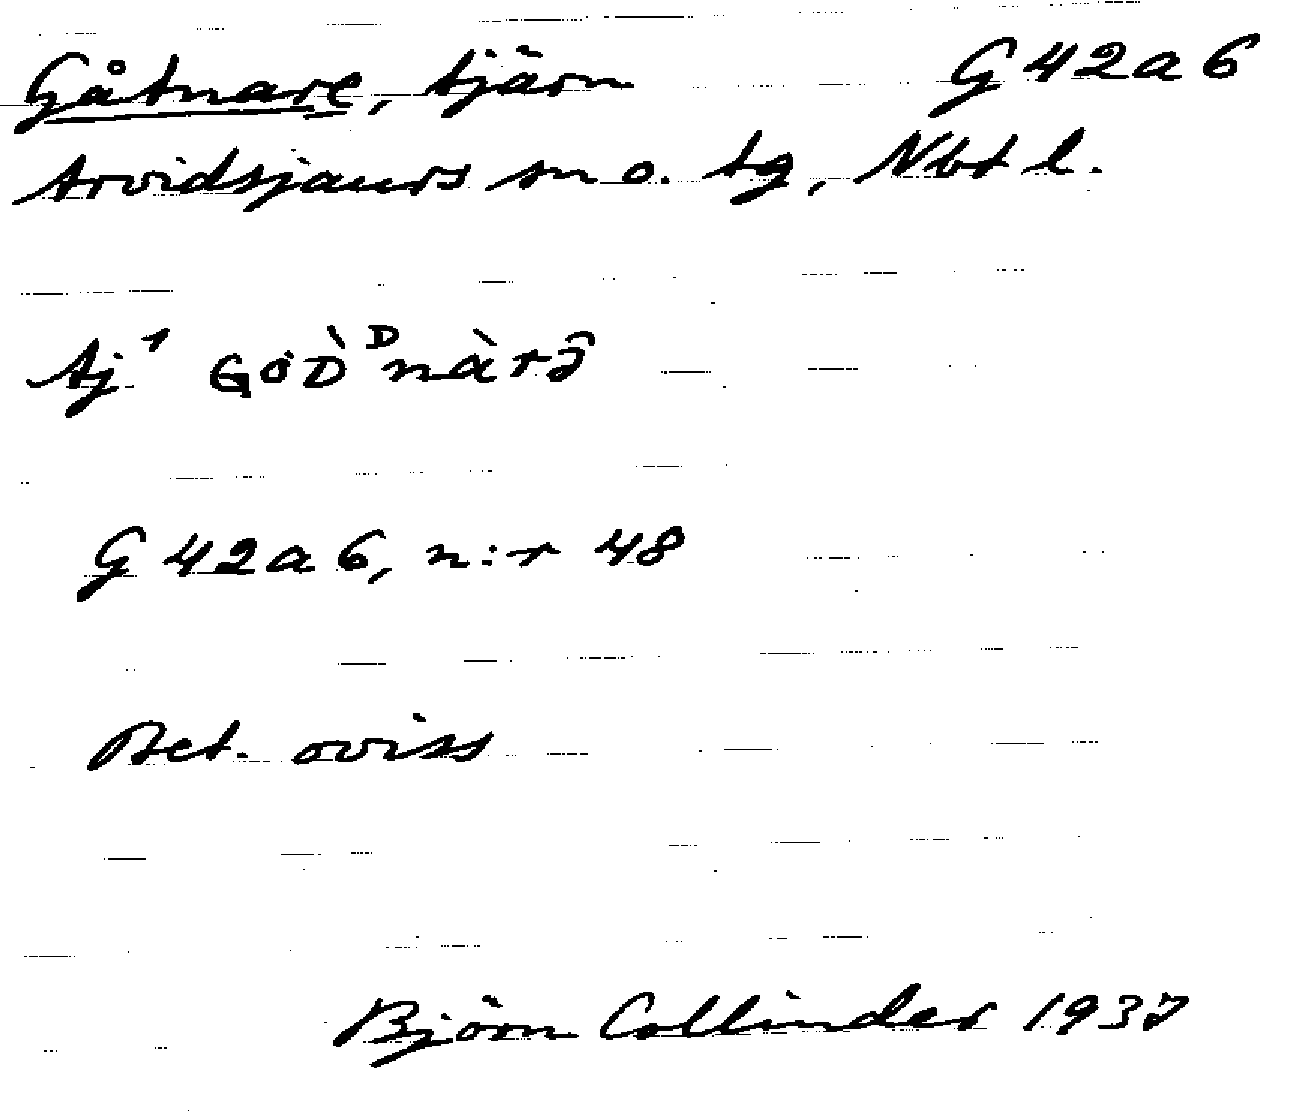 Gåtnare, tjärn G 42 a 6
Arvidsjaurs sn o. tg, Nbt l.
Aj¹ GOD̀ᴰnàrə̑
G 42 a 6, n:r 48
Bet. oviss
Björn Collinder 1937